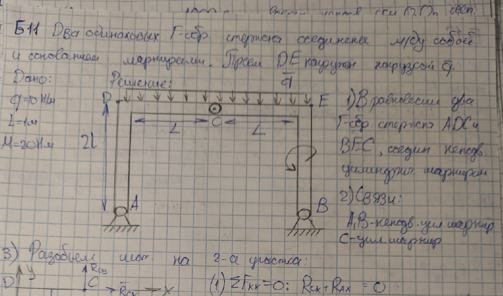 Б11 Два одинаковых Г-обр стержня соединены м/у собой
и основанием шарнирами. Пролёт DE нагружен нагрузкой q.
Дано:
Решение:
q=10 Н/м
L=1м
M=20Н·м
q
D
E
C
L
L
2l
A
B
1) В равновесии два
Г-обр стержня ADC и
BEC, соедин неподв.
цилиндрич шарниром
2) Связи:
A,B-неподв. цил шарнир
C-цил шарнир
3) Разобьем на 2-а участка
D
y
Rcy
C
Rcx
X
(1) ΣFkx=0: Rcx+RAx=0